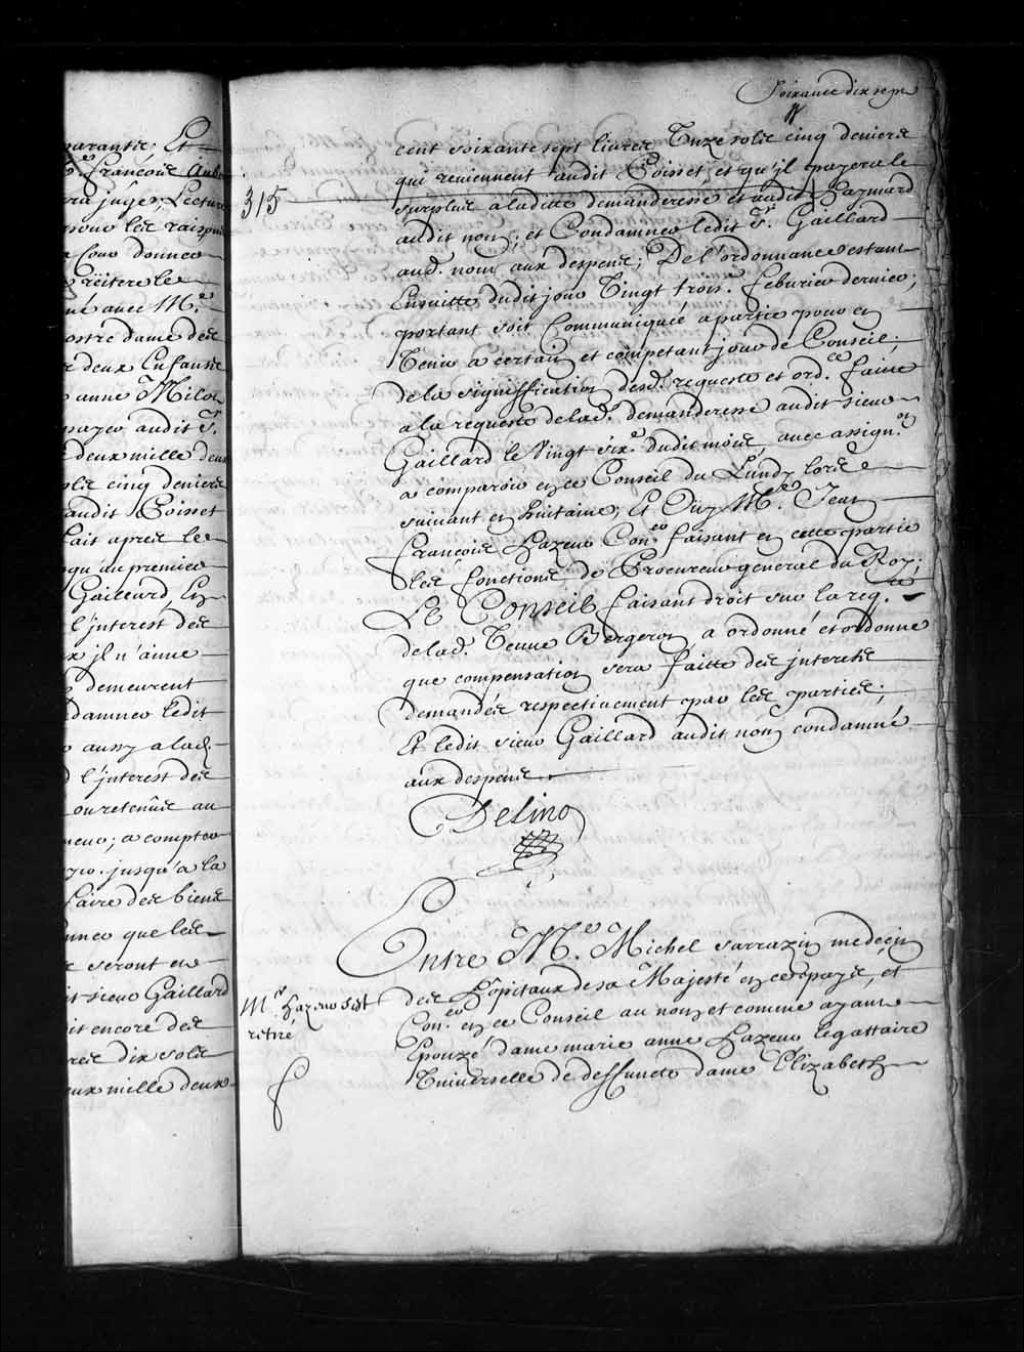 garantie; Et
Sr. François Aube
sera jugé; Lecture
pour les raisons
a Cour donner
reitere le
né avec Mr.
nostre dame des
et deux Enfans
anne Milot
payer audit Sr.
deux mille deux
solz cinq deniers
audit Poisset
fait apres le
qu'au premier
Gaillard, En
l'interest des
x il n'aime
demeurent
damner ledit
aussy a lad.
l'interest des
ou retenüe au
neur; a compter
jusqu'a la
faire des biens
nner que les
seront en
it sieur Gaillard
it encore des
res dix solz
eux mille deux
Soixante dix sept
cent soixante sept livres Unze solz cinq deniers
qui reviennent audit Poisset, et qu'il payera le
315
surplus a ladite demanderesse et audit Haymard
audit nom, et Condamner ledit Sr. Gaillard
aud. nom aux despens; De l'ordonnance estant
Ensuitte dudit jour Vingt trois.e febvrier dernier;
portant soit Communiqué a partie pour en
Venir a certain et competant jour de Conseil;
de la signiffication desd. requeste et ord.ce faitte
a la requeste de lad. demanderesse audit sieur
Gaillard le Vingt six.e dudit mois, avec assign.on
a comparoir en ce Conseil du Lundy lors
suivant en huitaine; Et Ouy Me. Jean
François Hazeur Con.er faisant en cette partie
les fonctions de Procureur general du Roy;
LE Conseil faisant droit sur la req.te
de lad. Veuve Bergeron a ordonné et ordonne
que compensation sera faitte des interests
demandés respectivement par les parties;
Et ledit sieur Gaillard audit nom condamné
aux despens
Delino
Entre Me. Michel sarrazin medecin
des hôpitaux de sa Majesté en ce payis, et
Mr. hazeur s'est
retiré
Con.er en ce Conseil au nom et comme ayant
Epouzé dame marie anne hazeur legattaire
Universelle de deffuncte dame Elizabeth